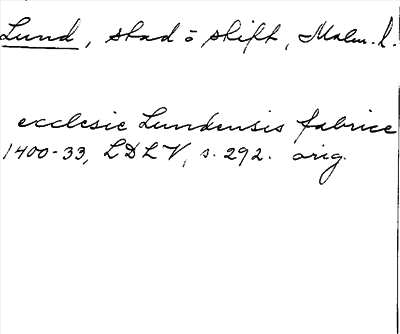 Lund, stad o stift, Malm. l.
ecclesie Lundensis fabrice
1400-33, LDLV, s. 292. orig.